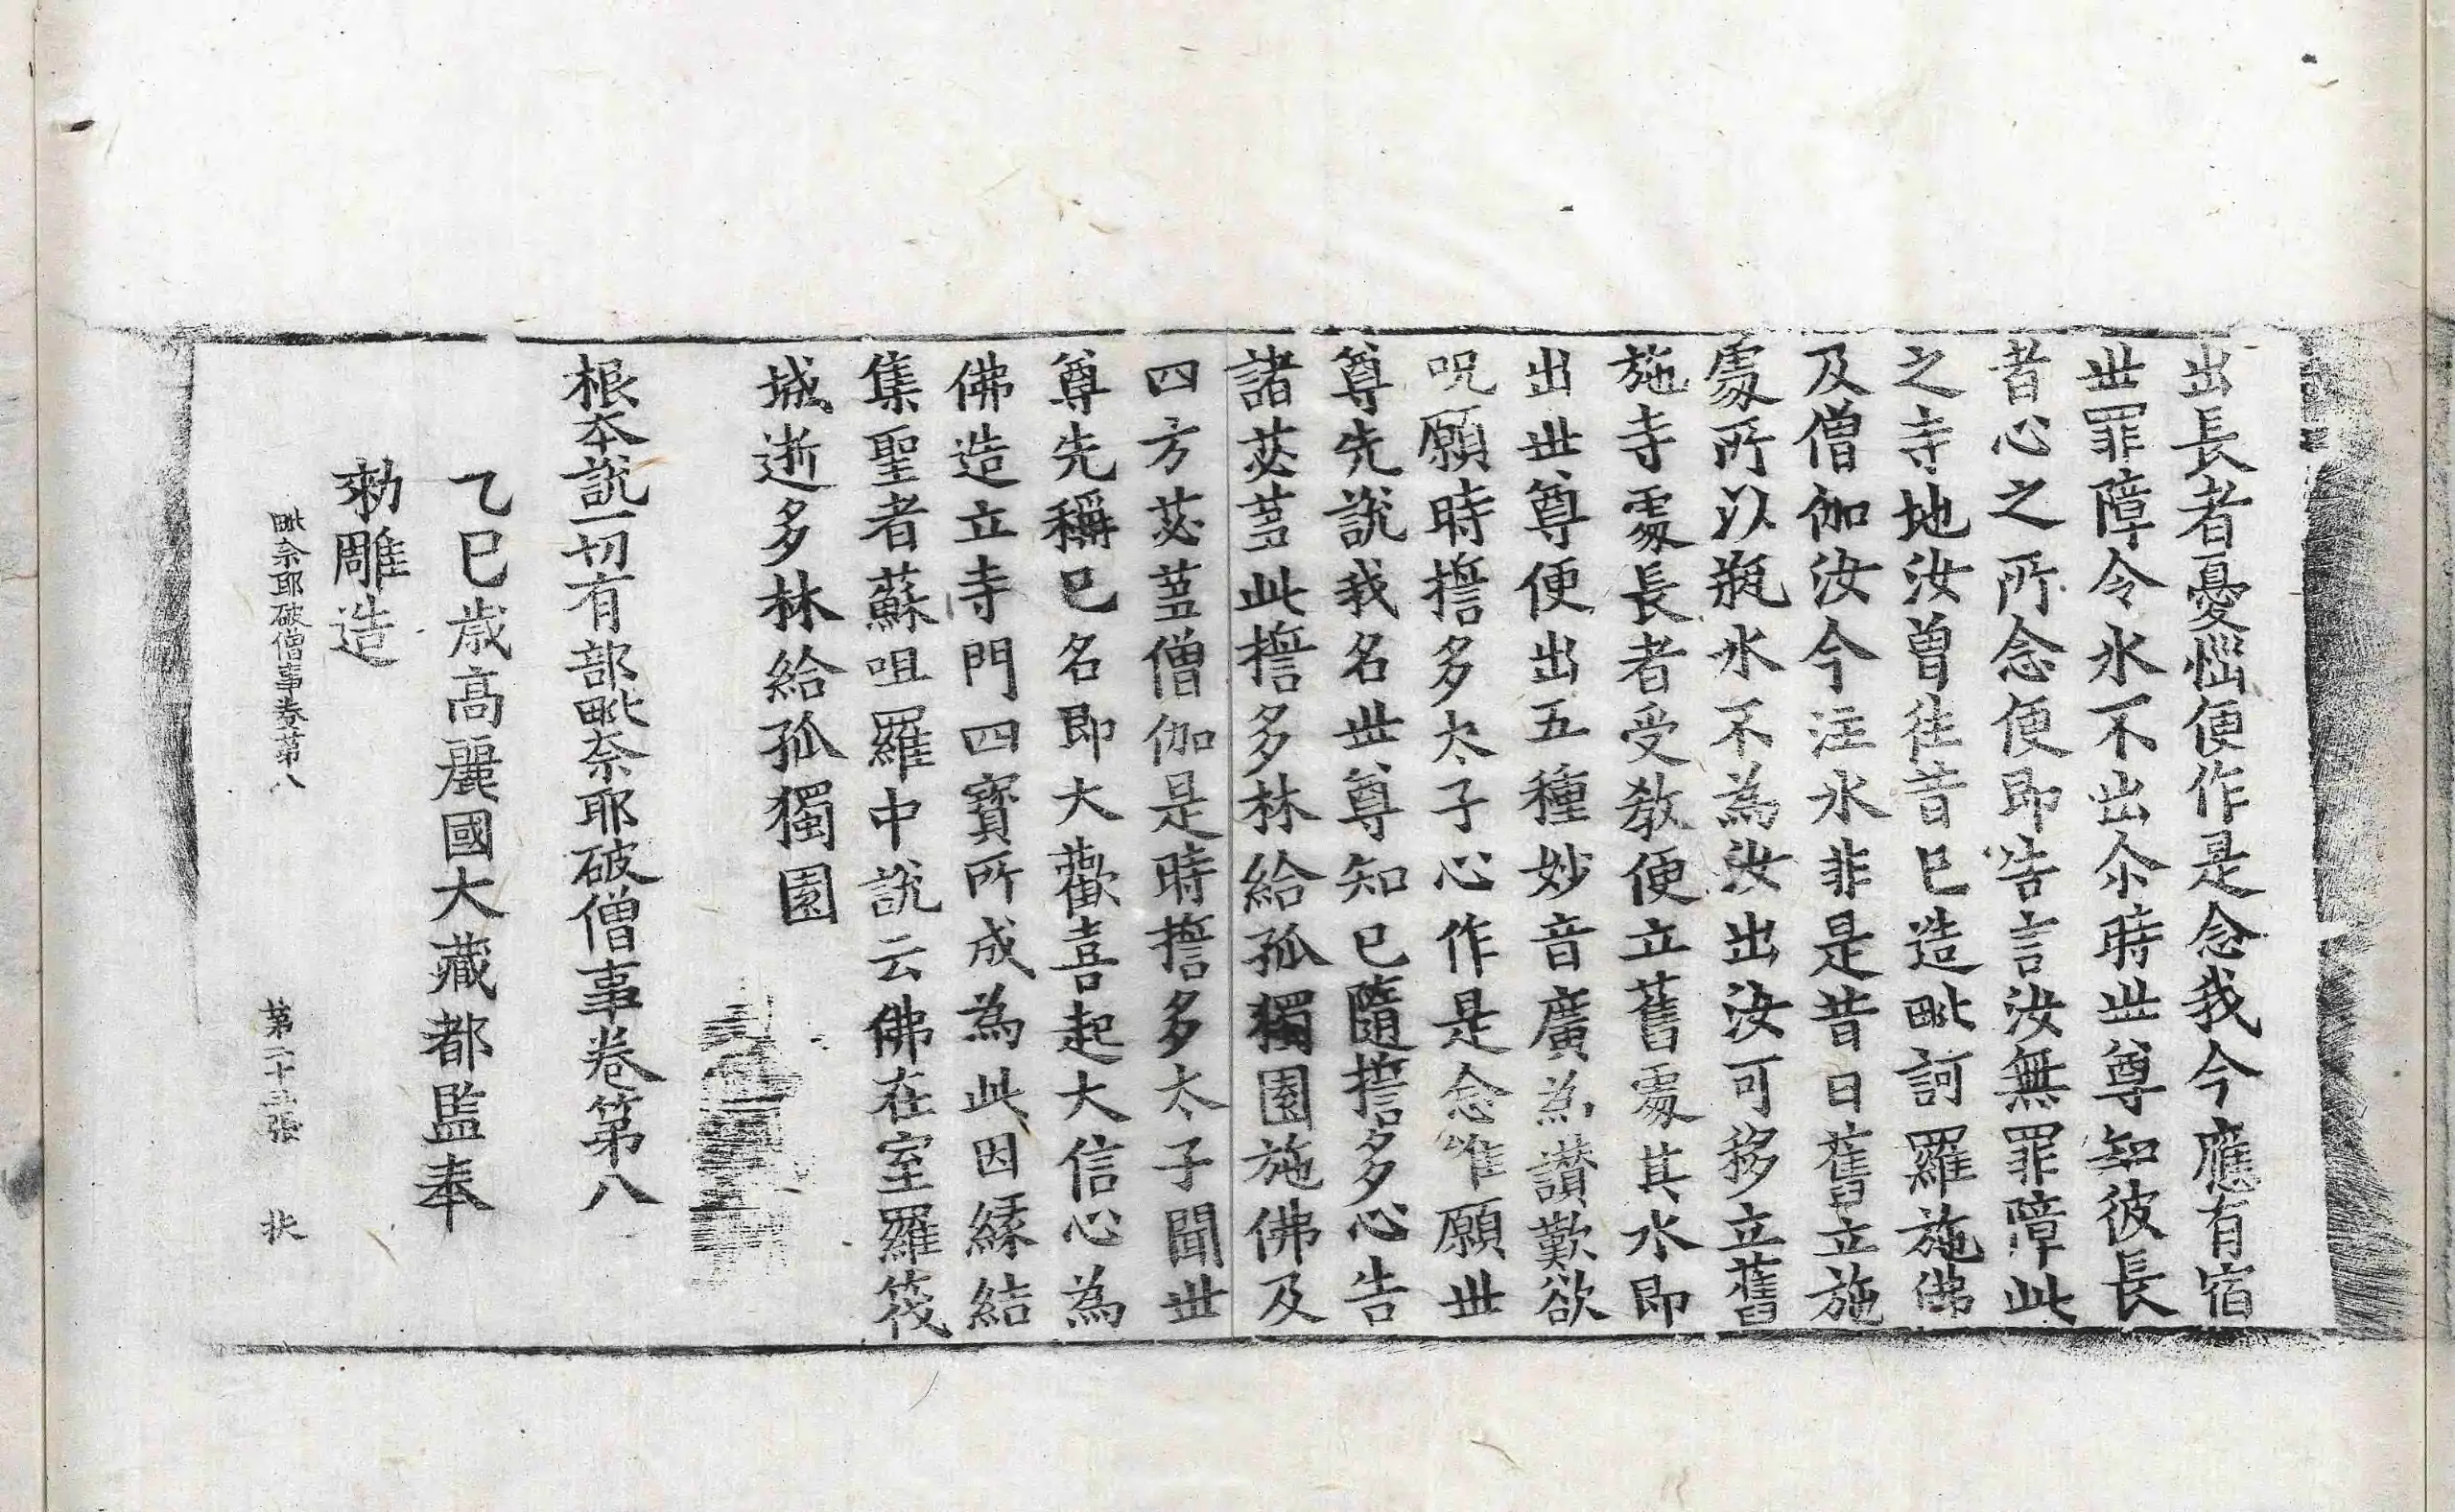 出長者憂惱便作是念我今應有宿
世罪障令水不出尒時世尊知彼長
者心之所念便即告言汝無罪障此
之寺地汝曽往昔已造毗訶羅施佛
及僧伽汝今注水非是昔日舊立施
處所以瓶水不為汝出汝可移立舊
施寺處長者受教便立舊處其水即
出世尊便出五種妙音廣為讃歎欲
呪願時擔多太子心作是念唯願世
尊先說我名世尊知已隨擔多心告
諸苾蒭此擔多林給孤獨園施佛及
四方苾蒭僧伽是時擔多太子聞世
尊先稱已名即大歡喜起大信心為
佛造立寺門四寶所成為此因緣結
集聖者蘇咀羅中說云佛在室羅筏
城逝多林給孤獨園
根本說一切有部毗奈耶破僧事卷第八
乙巳歳高麗國大藏都監奉
勅雕造
毗奈耶破僧事卷第八 第二十五張